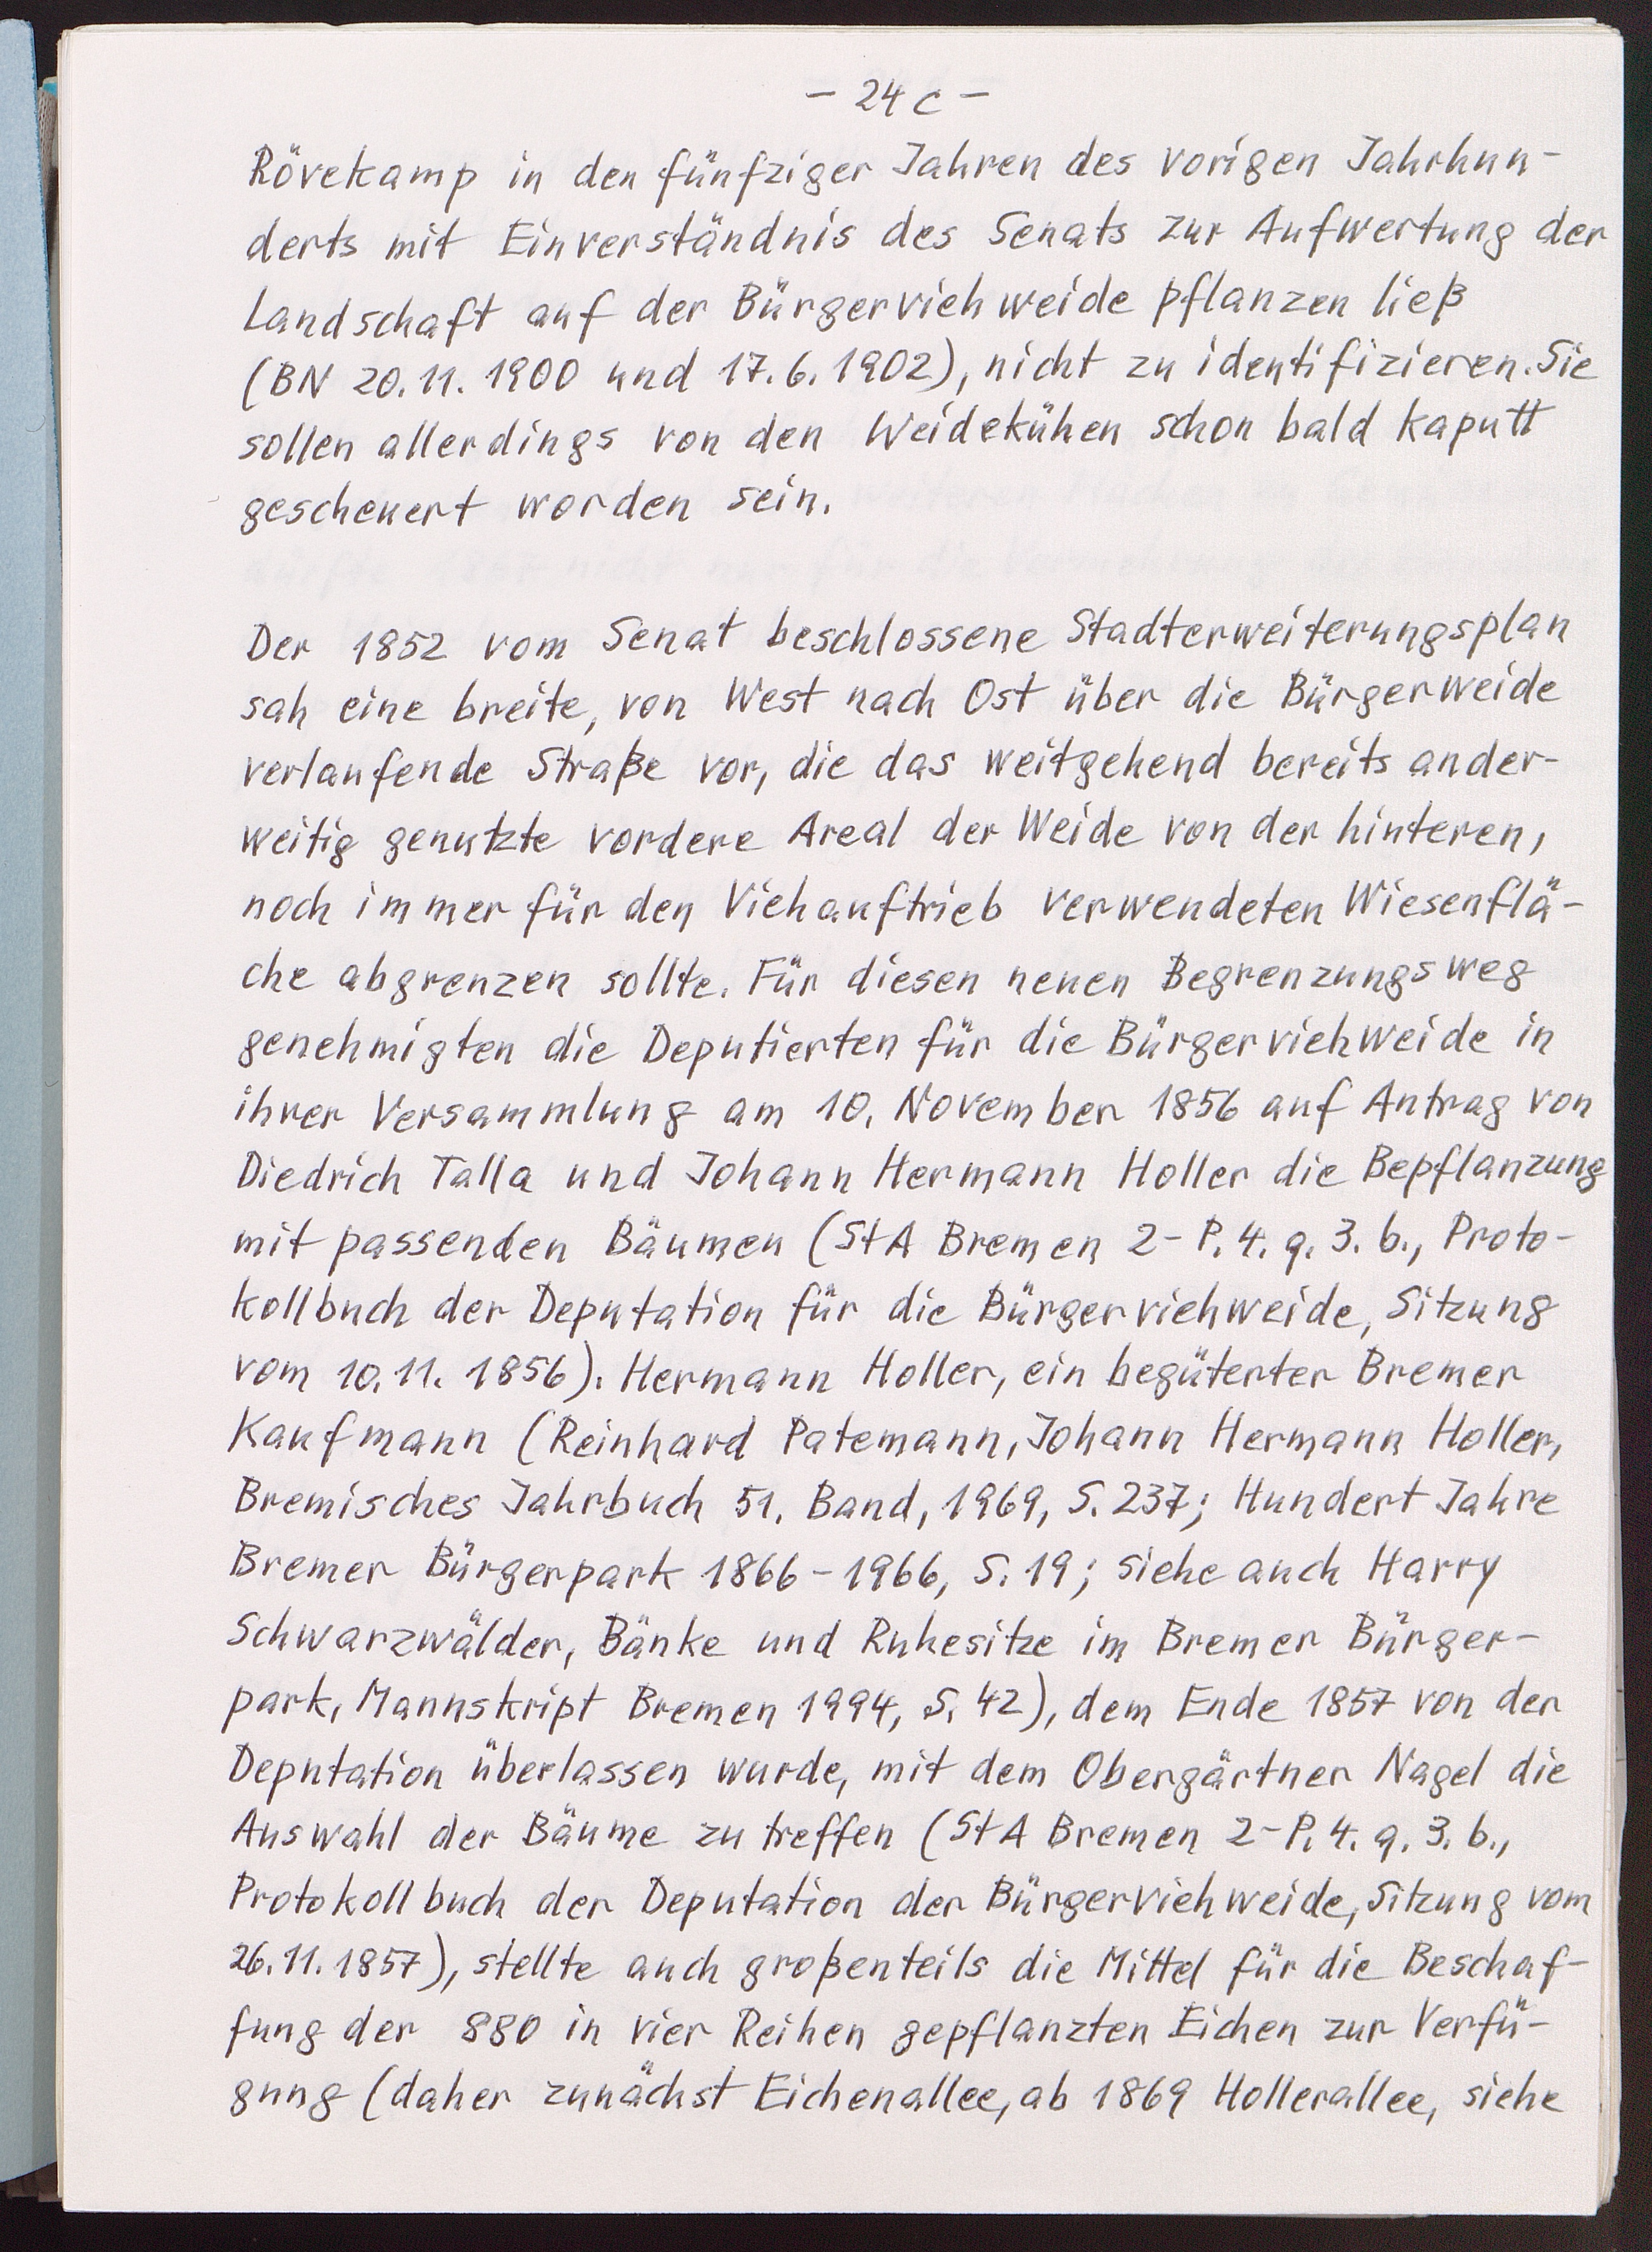 - 24 c -
Rövekamp in den fünfziger Jahren des vorigen Jahrhun-
derts mit Einverständnis des Senats zur Aufwertung der
Landschaft auf der Bürgerviehweide pflanzen ließ
(BN 20.11.1900 und 17.6.1902), nicht zu identifizieren. Sie
sollen allerdings von den Weidekühen schon bald kaputt
gescheuert worden sein.
Der 1852 vom Senat beschlossene Stadterweiterungsplan
sah eine breite, von West nach Ost über die Bürgerweide
verlaufende Straße vor, die das weitgehend bereits ander-
weitig genutzte vordere Areal der Weide von der hinteren,
noch immer für den Viehauftrieb verwendeten Wiesenflä-
che abgrenzen sollte. Für diesen neuen Begrenzungsweg
genehmigten die Deputierten für die Bürgerviehweide in
ihrer Versammlung am 10. November 1856 auf Antrag von
Diedrich Talla und Johann Hermann Holler die Bepflanzung
mit passenden Bäumen (StA Bremen 2-P.4.q.3.b., Proto-
kollbuch der Deputation für die Bürgerviehweide, Sitzung
vom 10.11.1856). Hermann Holler, ein begüterter Bremer
Kaufmann (Reinhard Patemann, Johann Hermann Holler,
Bremisches Jahrbuch 51. Band, 1969, S. 237; Hundert Jahre
Bremer Bürgerpark 1866-1966, S. 19; siehe auch Harry
Schwarzwälder, Bänke und Ruhesitze im Bremer Bürger-
park, Manuskript Bremen 1994, S. 42), dem Ende 1857 von der
Deputation überlassen wurde, mit dem Obergärtner Nagel die
Auswahl der Bäume zu treffen (StA Bremen 2-P.4.q.3.b.,
Protokollbuch der Deputation der Bürgerviehweide, Sitzung vom
26.11.1857), stellte auch großenteils die Mittel für die Beschaf-
fung der 880 in vier Reihen gepflanzten Eichen zur Verfü-
gung (daher zunächst Eichenallee, ab 1869 Hollerallee, siehe